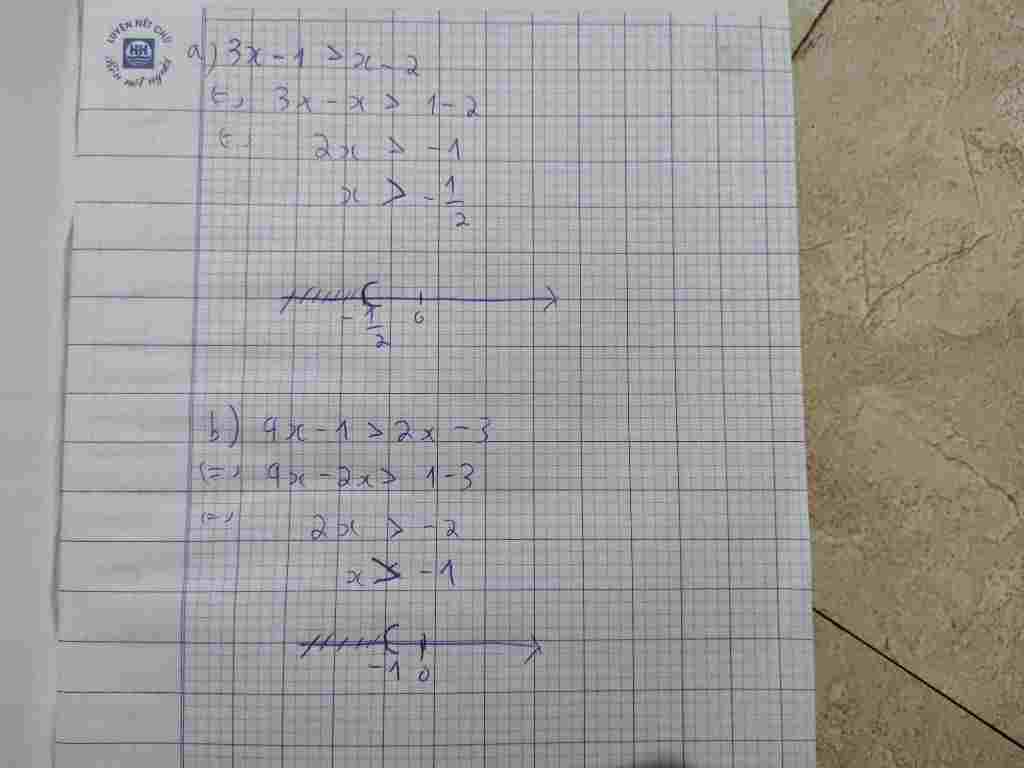 LUYỆN NÉT CHỮ
HH
RÈN NẾT NGƯỜI
a) 3x - 1 > x - 2
(=) 3x - x > 1 - 2
(=) 2x > -1
x > -1/2
-1/2 0
b) 4x - 1 > 2x - 3
(=) 4x - 2x > 1 - 3
(=) 2x > -2
x > -1
-1 0